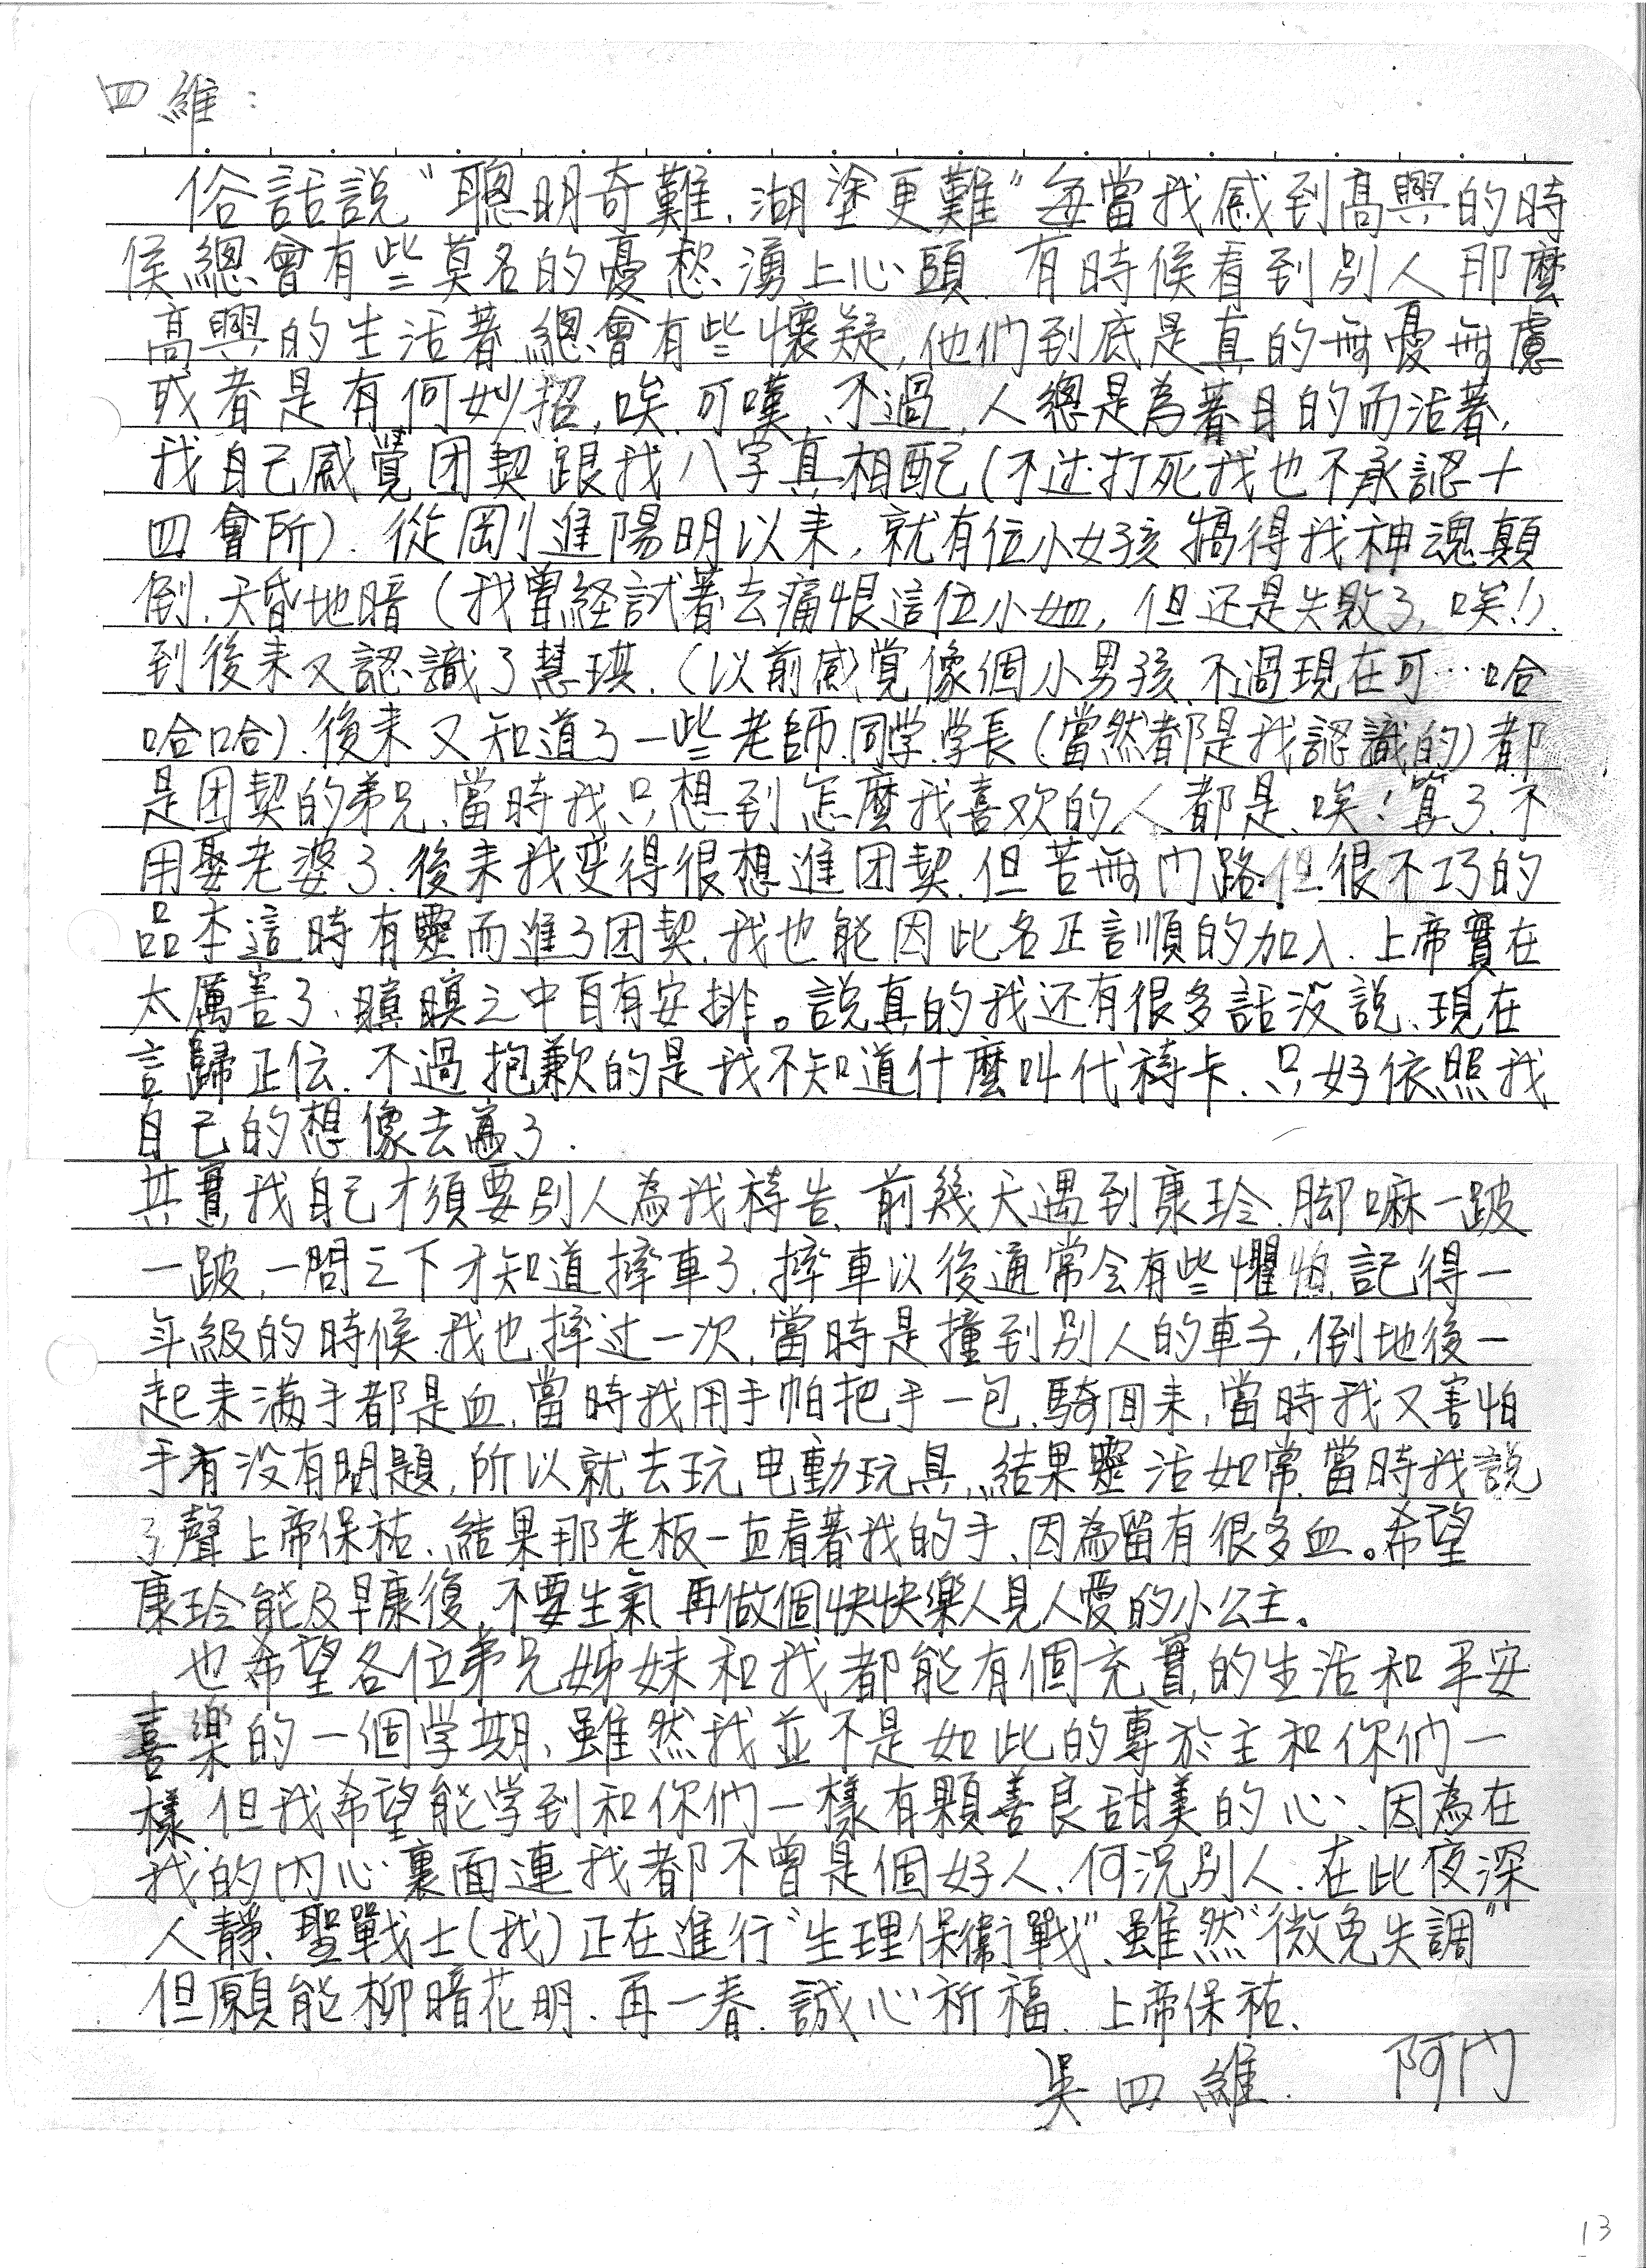 四維：
俗話說"聰明奇難、湖塗更難"每當我感到高興的時
侯總會有些莫名的憂愁湧上心頭、有時候看到別人那麼
高興的生活著總會有些懷疑,他們到底是真的無憂無慮
或者是有何妙招,唉、可嘆、不過,人總是為著目的而活著,
我自己感覺团契跟我八字真相配(不过打死我也不承認十
四會所)、從剛進陽明以来,就有位小女孩搞得我神魂顛
倒、天昏地暗(我曾経試著去痛恨這位小妞,但还是失敗了,唉!)、
到後来又認識了慧琪、(以前感覚像個小男孩、不過現在可…哈
哈哈)、後来又知道了一些老師、同学、学長(當然都是我認識的)都
是团契的弟兄、當時我只想到怎麼我喜欢的人都是、唉!算了、不
用娶老婆了、後来我变得很想進团契、但苦無門路、但很不巧的
品本這時有靈而進了团契、我也能因此名正言順的加入、上帝實在
太厲害了、瞑瞑之中自有安排。說真的我还有很多話没說、現在
言歸正伝、不過抱歉的是我不知道什麼叫代禱卡、只好依照我
自己的想像去寫了、
其實我自己才須要別人為我禱告、前幾天遇到康玲、脚嘛一跛
一跛,一問之下才知道摔車了、摔車以後通常会有些懼怕、記得一
年級的時候、我也摔过一次,當時是撞到別人的車子,倒地後一
起来满手都是血,當時我用手帕把手一包、騎回来,當時我又害怕
手有没有問題,所以就去玩电動玩具,結果靈活如常、當時我說
了聲上帝保祐、結果那老板一直看著我的手、因為留有很多血。希望
康玲能及早康復,不要生氣,再做個快快樂人見人愛的小公主。
也希望各位弟兄姊妹和我都能有個充實的生活和平安
喜樂的一個学期、雖然我並不是如此的專於主和你們一
樣、但我希望能学到和你們一樣有顆善良甜美的心、因為在
我的内心裏面連我都不曾是個好人、何況別人、在此夜深
人靜、聖戰士(我)正在進行"生理保衛戰"、雖然"微免失調"
但願能柳暗花明、再一春、誠心祈福、上帝保祐、
吳四維、 阿門
13